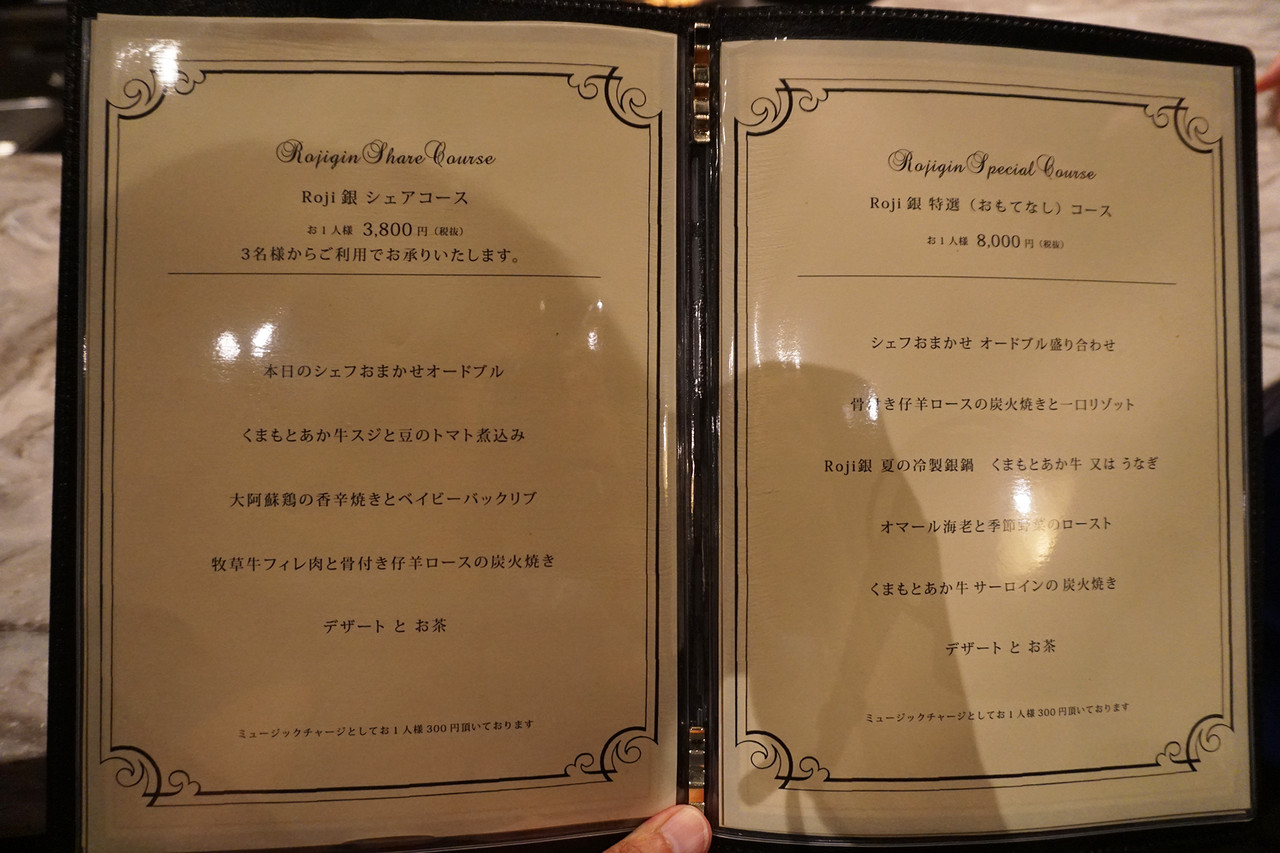 Rojigin Share Course
Roji 銀 シェアコース
お1人様 3,800 円（税抜）
3名様からご利用でお承りいたします。
本日のシェフおまかせオードブル
くまもとあか牛スジと豆のトマト煮込み
大阿蘇鶏の香辛焼きとベイビーバックリブ
牧草牛フィレ肉と骨付き仔羊ロースの炭火焼き
デザート と お茶
ミュージックチャージとしてお1人様300円頂いております
Rojigin Special Course
Roji 銀 特選（おもてなし）コース
お1人様 8,000 円（税抜）
シェフおまかせ オードブル盛り合わせ
骨付き仔羊ロースの炭火焼きと一口リゾット
Roji銀 夏の冷製銀鍋　くまもとあか牛 又は うなぎ
オマール海老と季節野菜のロースト
くまもとあか牛 サーロインの 炭火焼き
デザート と お茶
ミュージックチャージとしてお1人様300円頂いております